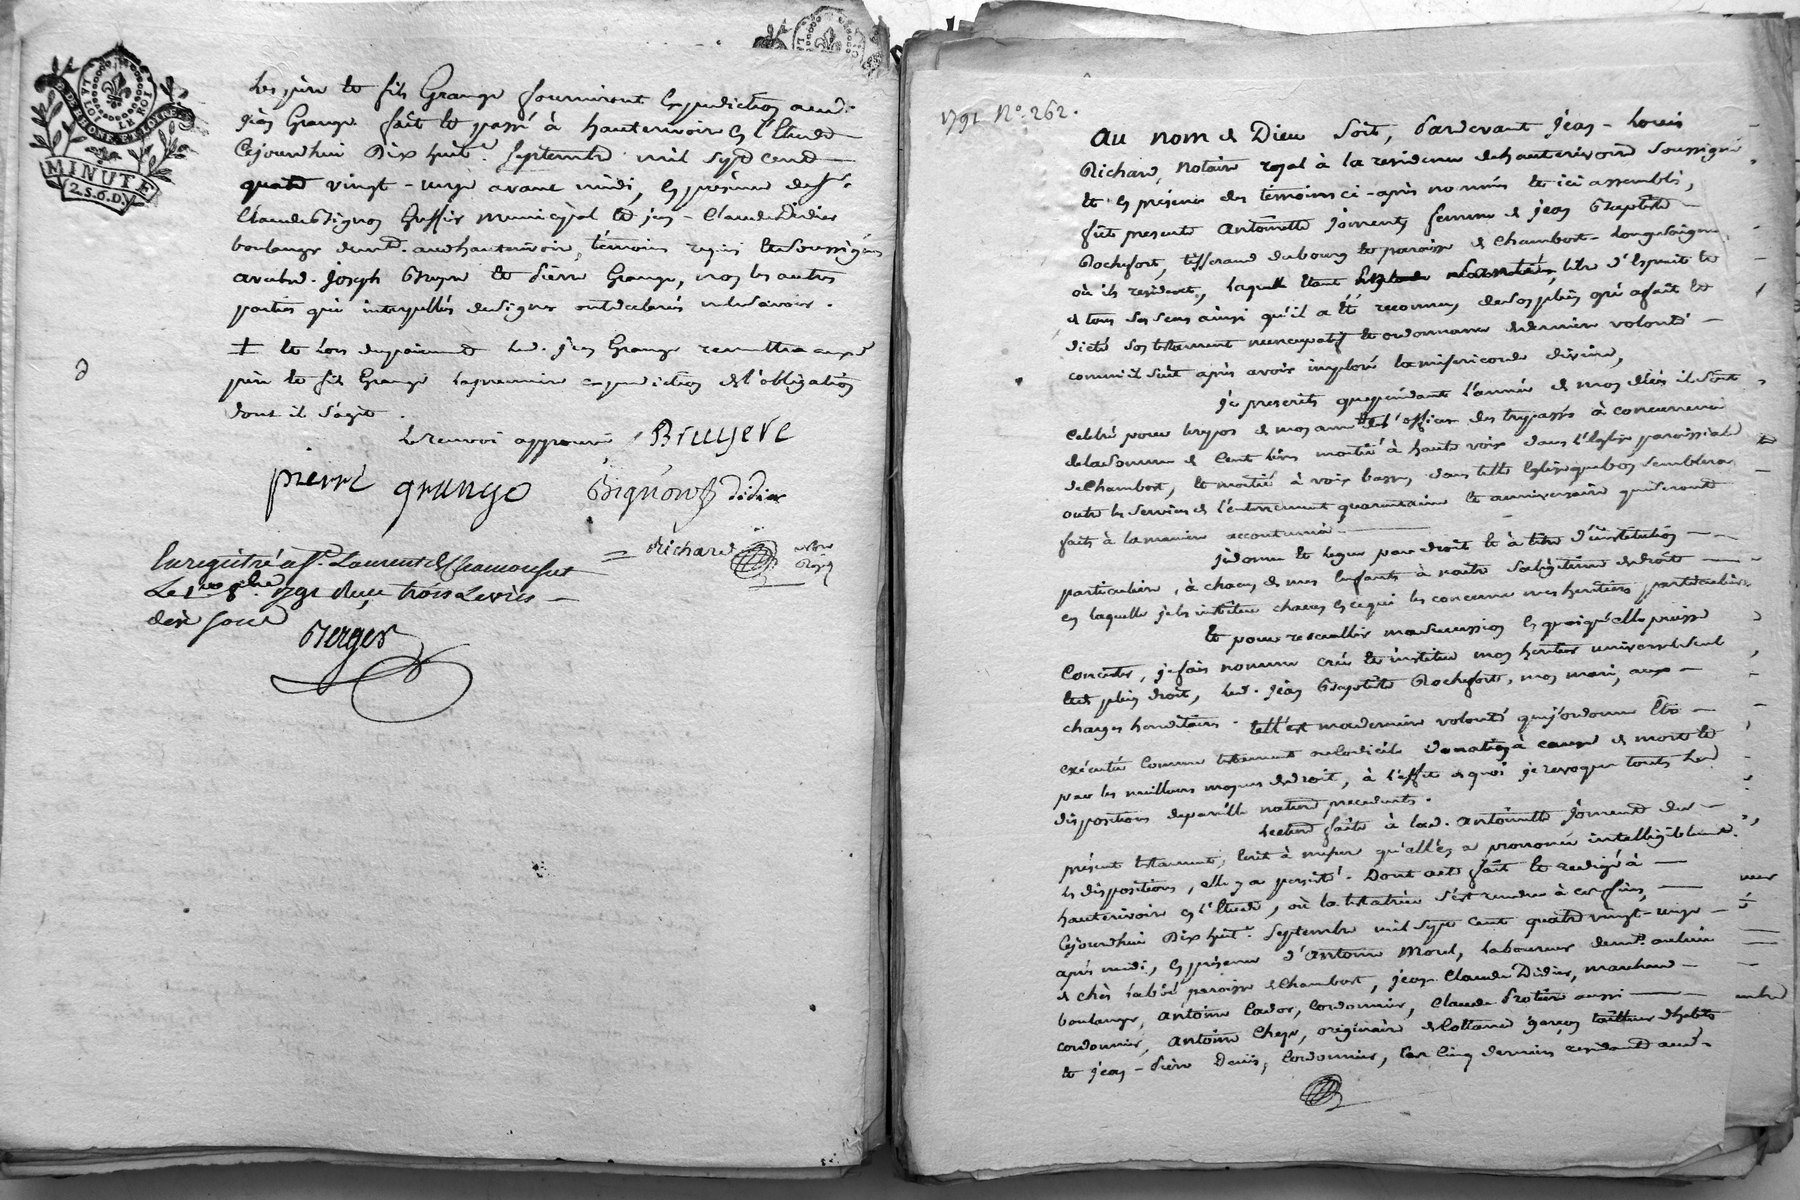 LA LOI ET LE ROI
DEP. DE RHONE ET LOIRE
MINUTE
2.S.6.D.
Les père et fils Grange fourniront expédition aud.
jean Grange. fait et passé à hauterivoire en l'Etude
Cejourdhui Dix huit. Septembre mil sept cent
quatre vingt-unze avant midi, en présence de Sr.
Claude Bignon Greffier municipal et jean-Claude Didier
boulanger demt. aud hauterivoire, témoins requis et soussignés
avec led. Joseph Bruyere et Pierre Grange, non les autres
parties qui interpellés de signer ont déclarés ne le savoir.
+ et lors du paiement led. jean Grange remettra auxd
père et fils Grange la premiere expédition de l'obligation
dont il s'agit.
le renvoi approuvé Bruyere
pierre grange Bignon Didier
Richard notre Royal
Enregistré a St. Laurent de Chamousset
Le 1er 8bre 1791 reçu trois Livres
dix sous
Berger
1791 No. 262.
Au nom de Dieu soit, Pardevant jean-Louis
Richard, Notaire royal à la residence de hauterivoire soussigné
et en présence des témoins ci-après nommés et ici assemblés,
fut presente Antoinette joment femme de jean Baptiste
Rochefort, tisserand du bourg et paroisse de Chambost-Longessaigne
où ils resident, laquelle étant libre d'Esprit et
de tous ses sens ainsi qu'il a été reconnu, de son plein gré a fait et
dicté son testament nuncupatif et ordonnance de derniere volonté
comme il suit après avoir imploré la misericorde divine,
je prescrits que pendant l'année de mon décès il soit
Celebré pour le repos de mon ame de l'office des trepassés à concurrence
de la somme de Cent livres moitié à haute voix dans l'Eglise paroissiale
de Chambost, et moitié à voix basse, dans telle Eglise que bon semblera
outre les services de l'enterrement quarantaine et anniversaire qui seront
faits à la maniere accoutumée
je donne et legue par droit et à titre d'institution
particuliere, à chacun de mes Enfants à naitre sa légitime de droit
en laquelle je les institue chacun en ce qui les concerne mes heritiers particuliers
Et pour recueillir ma succession en quoi qu'elle puisse
Consister, je fais nomme crée et institue mon heritier universel seul
et de plein droit, led. jean Baptiste Rochefort, mon mari, aux
charges hereditaires. telle est ma derniere volonté que j'ordonne Etre
exécutée Comme testament ou codicile donation à cause de mort et
par les meilleurs moyens de droit, à l'effet de quoi je revoque toutes
dispositions de pareille nature precedentes.
Lecture faite à lad. Antoinette joment du
présent testament, Ecrit à mesure qu'elle en a prononcé intelligiblement
les dispositions, elle y a persisté. Dont acte fait et redigé à
hauterivoire en l'Etude, où la testatrice s'est rendue à ces fins,
Cejourdhui Dix huit. Septembre mil sept cent quatre vingt-unze
après midi, en présence d'Antoine Morel, laboureur demt. au lieu
de chès paroisse de Chambost, jean Claude Didier, marchand
boulanger, Antoine Cador, Cordonnier, Claude Protiere aussi
cordonnier, Antoine Cheze, originaire de Cottance garçon tailleur d'habits
et jean-Pierre Denis, Cordonnier, les Cinq derniers residant aud.